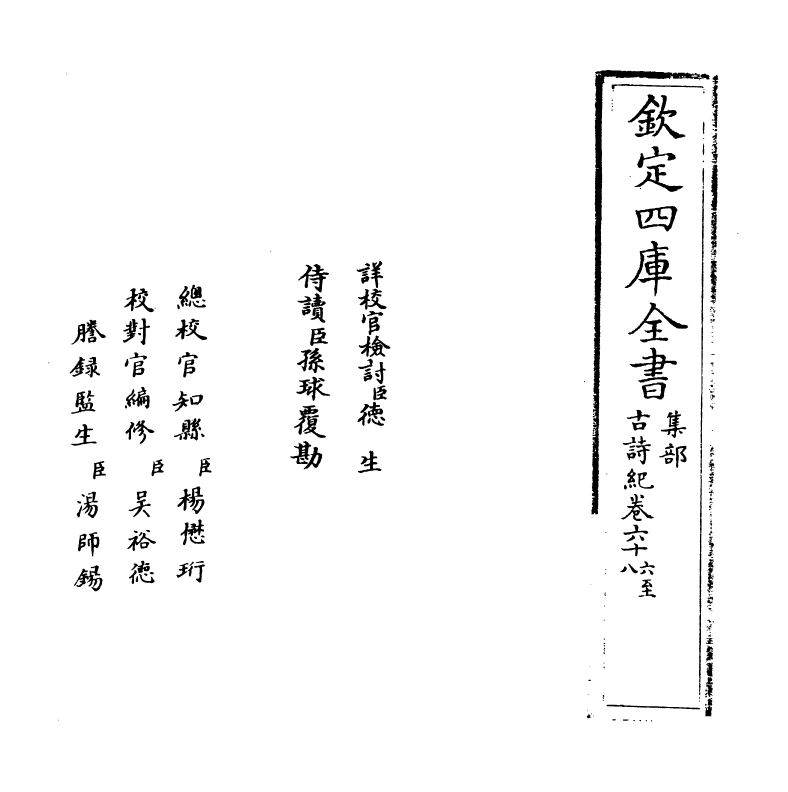 欽定四庫全書
集部
古詩紀卷六十六至八
詳校官檢討臣德生
侍讀臣孫球覆勘
總校官知縣臣楊懋珩
校對官編修臣吴裕德
謄録監生臣湯師錫